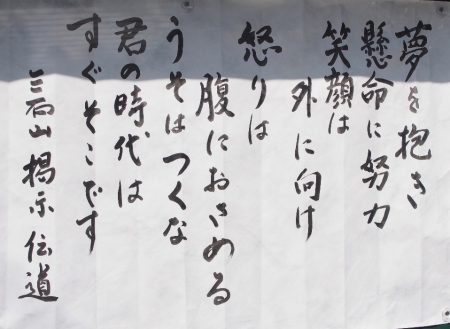 夢を抱き
懸命に努力
笑顔は
外に向け
怒りは
腹におさめる
うそはつくな
君の時代は
すぐそこです
三石山 掲示伝道